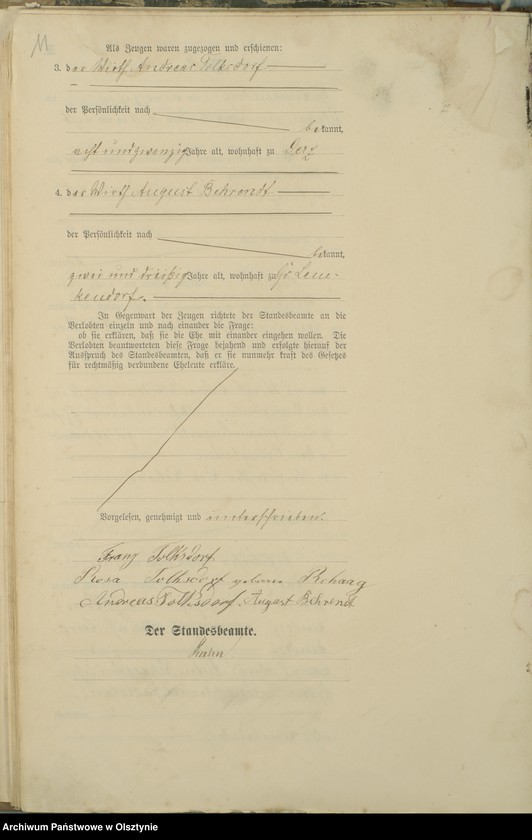 11
Als Zeugen waren zugezogen und erschienen:
3. der Wirth Andreas Tolksdorf
der Persönlichkeit nach
bekannt,
acht und zwanzig Jahre alt, wohnhaft zu Derz
4. der Wirth August Behrendt
der Persönlichkeit nach
bekannt,
zwei und dreißig Jahre alt, wohnhaft zu Gr Lem-
kendorf.
In Gegenwart der Zeugen richtete der Standesbeamte an die
Verlobten einzeln und nach einander die Frage:
ob sie erklären, daß sie die Ehe mit einander eingehen wollen. Die
Verlobten beantworteten diese Frage bejahend und erfolgte hierauf der
Ausspruch des Standesbeamten, daß er sie nunmehr kraft des Gesetzes
für rechtmäßig verbundene Eheleute erkläre.
Vorgelesen, genehmigt und unterschrieben.
Franz Tolksdorf
Rosa Tolksdorf geborene Rehaag
Andreas Tolksdorf. August Behrend
Der Standesbeamte.
Archiwum Państwowe w Olsztynie